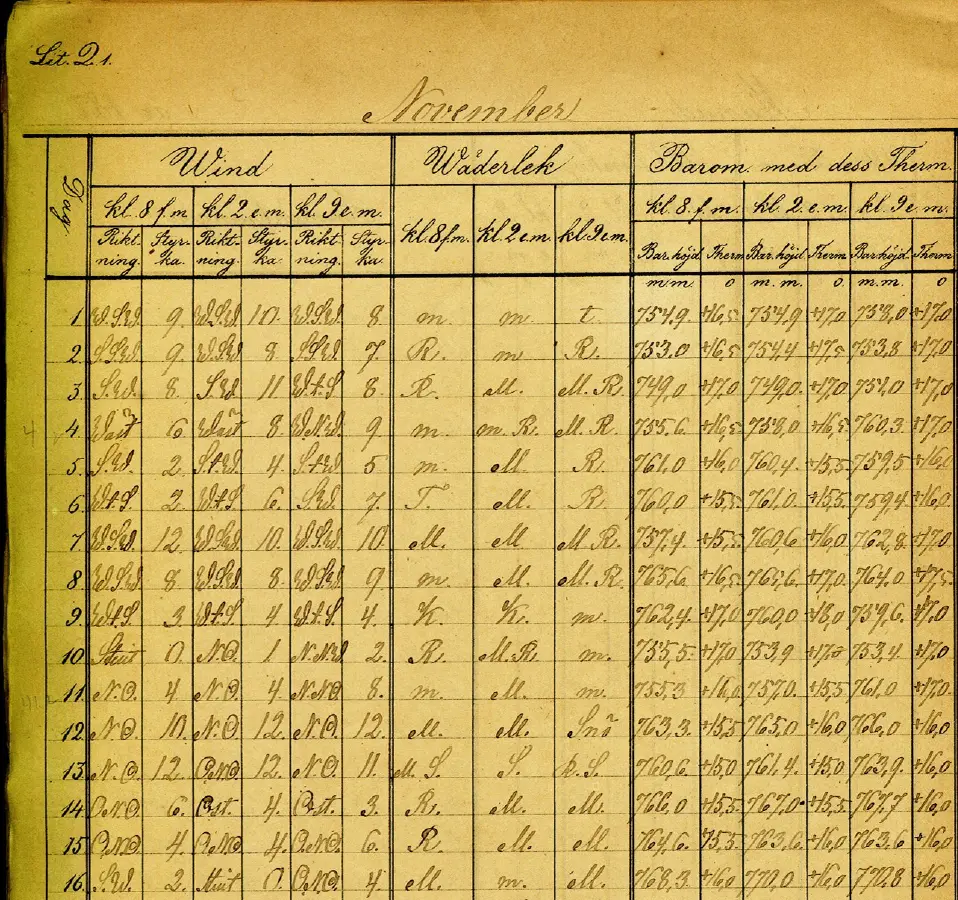 Lit. Q 1.
November
Dag Wind Wäderlek Barom. med dess Therm.
kl. 8 f.m. kl. 2 e.m. kl. 9 e.m. kl. 8 f.m. kl. 2 e.m. kl. 9 e.m. kl. 8. f.m. kl. 2. e.m. kl. 9 e.m.
Rikt- Styr- Rikt- Styr- Rikt- Styr-
ning. ka. ning. ka. ning. ka. Bar.höjd Therm Bar.höjd Therm Bar.höjd Therm
m.m. o m.m. o. m.m. o
1. W.S.W. 9. W.S.W. 10. W.S.W. 8. m. m. t. 754.9 +16,5 754,9 +17,0 758,0 +17,0
2. S.S.W. 9. W.S.W. 8. S.S.W. 7. R. m R. 753.0 +16,5 754,4 +17,5 753,8 +17,0
3. S.W. 8. S.W. 11 W.t.S 8. R. M. M.R. 749,0 +17,0 749,0. +17,0 751,0 +17,0
4. 6. 8. W.N.W. 9 m. m R. M.R. 755.6. +16,5 758,0 +16,5 760,3 +17,0
5. S.W. 2. S.t.W. 4. S.t.W. 5 m. M. R. 761,0 +16,0 760,4. +15,5 759,5 +16,0
6. W.t.S. 2. W.t.S 6. S.W. 7. T. M. R. 760,0 +15,5 761,0. +15,5 759,4 +16,0
7. W.S.W. 12. W.S.W. 10. W.S.W. 10. M. M. M.R. 757,4. +15,5 760,6 +16,0 762,8. +17,0
8. W.S.W. 8. W.S.W. 8. W.S.W. 9. m. M. M.R. 765,6 +16,5 765,6. +17,0. 764,0 +17,5
9. W.t.S 3. W.t.S 4. W.t.S. 4. K. K. m. 762,4 +17,0 760,0 +18,0 759,6. +17,0
10. Stiut 0. N.O. 1 N.N.W 2. R. M.R. m. 755,5. +17,0 753,9 753,4. +17,0
11. N.O. 4 N.O. 4. N.N.O 8. m. M. m. 755,3 +16,0 757,0. +15,5 761,0 +17,0.
12. N.O. 10. N.O. 12. N.O. 12. M. M. Snö 763,3. +15,5 765,0 +16,0 766,0 +16,0
13. N.O. 12. O.N.O 12. N.O. 11. M.S. S. R.S. 760,6. +15,0 761,4. +15,0 763,9. +16,0
14 O.N.O 6. Ost. 4. Ost. 3. R. M. M. 766,0 +15,5 767,0 +15,5 767,7 +16,0
15 O.N.O. 4. O.N.O 4. O.N.O. 6. R M. M. 764,6. +15,5 763,6. +16,0 763,6 +16,0
16. S.W. 2. Stiut 0. O.N.O. 4. M. m. M. 768,3. +16,0 770,0 +16,0 770,8 +16,0